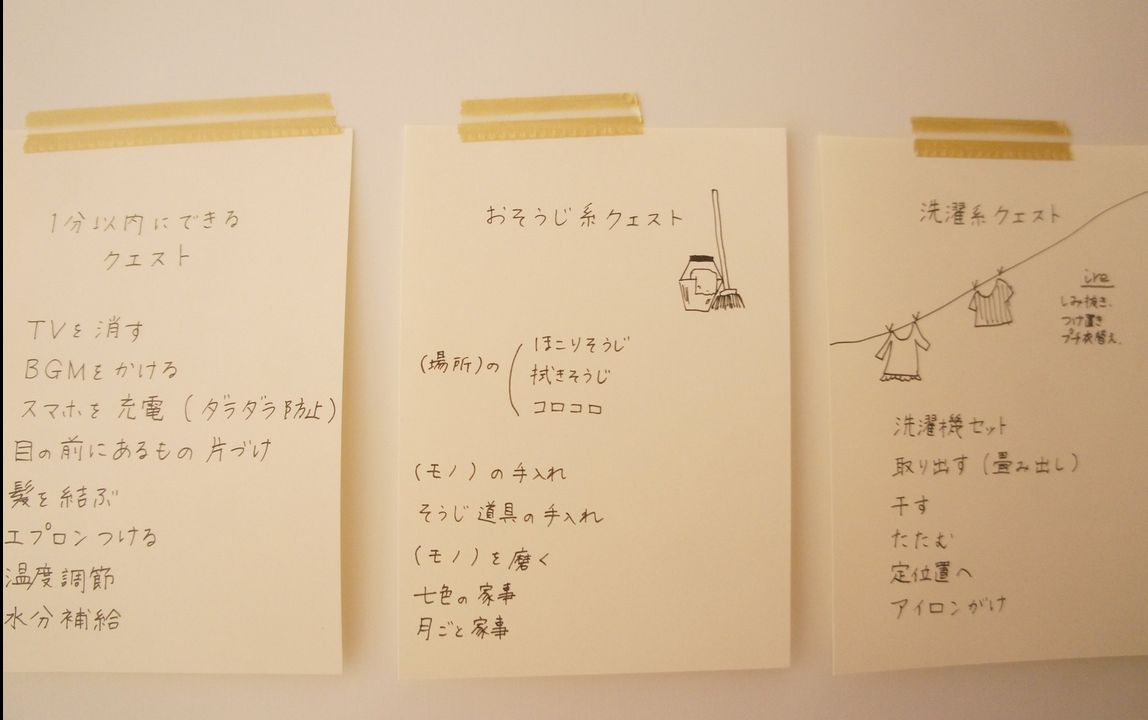 1分以内にできる
クエスト
TVを消す
BGMをかける
スマホを充電(ダラダラ防止)
目の前にあるもの片づけ
髪を結ぶ
エプロンつける
温度調節
水分補給
おそうじ系クエスト
(場所)の
ほこりそうじ
拭きそうじ
コロコロ
(モノ)の手入れ
そうじ道具の手入れ
(モノ)を磨く
七色の家事
月ごと家事
洗濯系クエスト
しみ抜き、
つけ置き
プチ衣替え、
洗濯機セット
取り出す(畳み出し)
干す
たたむ
定位置へ
アイロンがけ